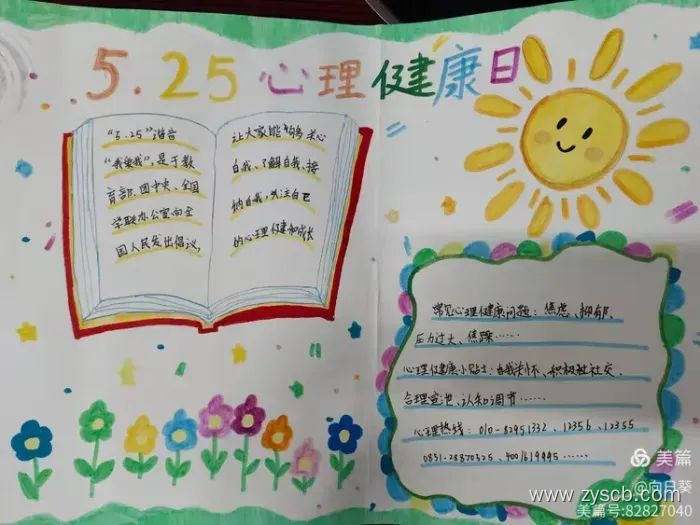 5.25心理健康日
“5.25”谐音
“我爱我”,是于教
育部、团中央、全国
学联办公室向全
国人民发出倡议,
让大家能够多关心
自我、了解自我、接
纳自我,关注自己
的心理健康和成长
常见心理健康问题:焦虑、抑郁、
压力过大、焦躁……
心理健康小贴士:自我关怀、积极社交、
合理宣泄、认知调节……
心理热线:010-82951332、12356、12355
0831-28870325、4001619995……
美篇
@向日葵
www.zyscb.com
美篇号:82827040